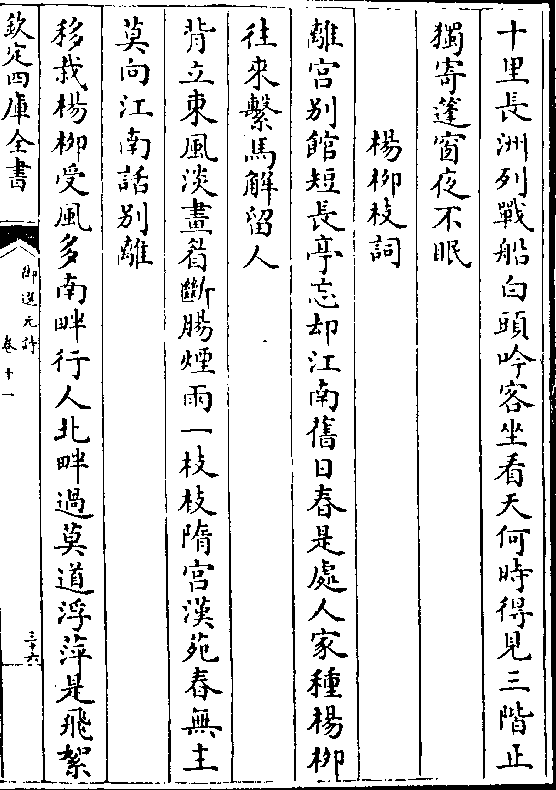 十里長洲列戰船白頭吟客坐看天何時得見三階止
獨寄蓬窗夜不眠
楊柳枝詞
離宫别館短長亭忘却江南舊日春是處人家種楊柳
往来繫馬解留人
背立東風淡畫眉斷腸煙雨一枝枝隋宫漢苑春無主
莫向江南話别離
移栽楊柳受風多南畔行人北畔過莫道浮萍是飛絮
欽定四庫全書
御選元詩
卷十一
三十六